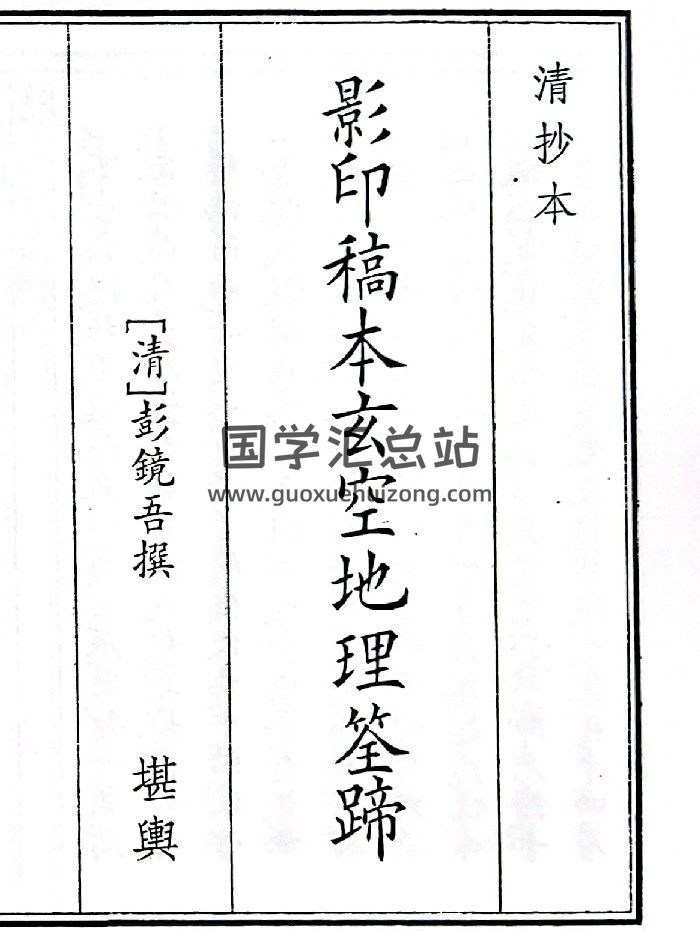 清抄本
影印稿本玄空地理筌蹄
[清]彭鏡吾撰
堪輿
国学汇总站
www.guoxuehuizong.com